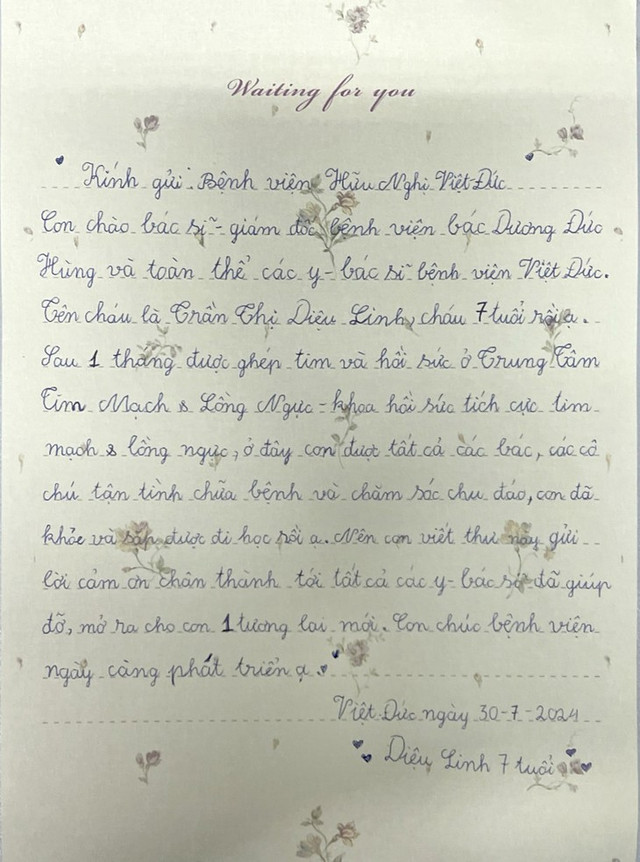 Waiting for you
Kính gửi: Bệnh viện Hữu Nghị Việt Đức
Con chào bác sĩ - giám đốc bệnh viện bác Dương Đức
Hùng và toàn thể các y - bác sĩ bệnh viện Việt Đức.
Tên cháu là Trần Thị Diệu Linh, cháu 7 tuổi rồi ạ.
Sau 1 tháng được ghép tim và hồi sức ở Trung Tâm
Tim Mạch & Lồng Ngực - khoa hồi sức tích cực tim
mạch & lồng ngực, ở đây con được tất cả các bác, các cô
chú tận tình chữa bệnh và chăm sóc chu đáo, con đã
khỏe và sắp được đi học rồi ạ. Nên con viết thư này gửi
lời cảm ơn chân thành tới tất cả các y - bác sĩ đã giúp
đỡ, mở ra cho con 1 tương lai mới. Con chúc bệnh viện
ngày càng phát triển ạ.
Việt Đức ngày 30-7-2024
Diệu Linh 7 tuổi